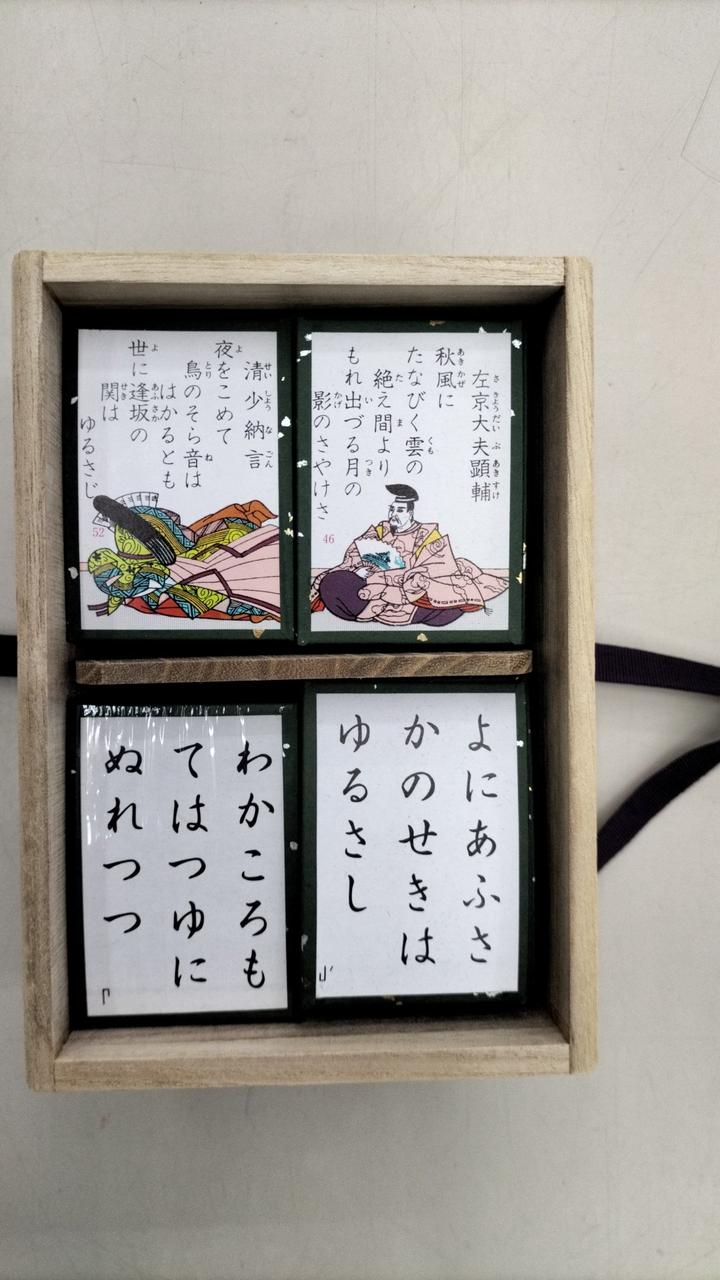 左京大夫顕輔
秋風に
たなびく雲の
絶え間より
もれ出づる月の
影のさやけさ
46
清少納言
夜をこめて
鳥のそら音は
はかるとも
世に逢坂の
関は
ゆるさじ
52
よにあふさ
かのせきは
ゆるさし
わかころも
てはつゆに
ぬれつつ